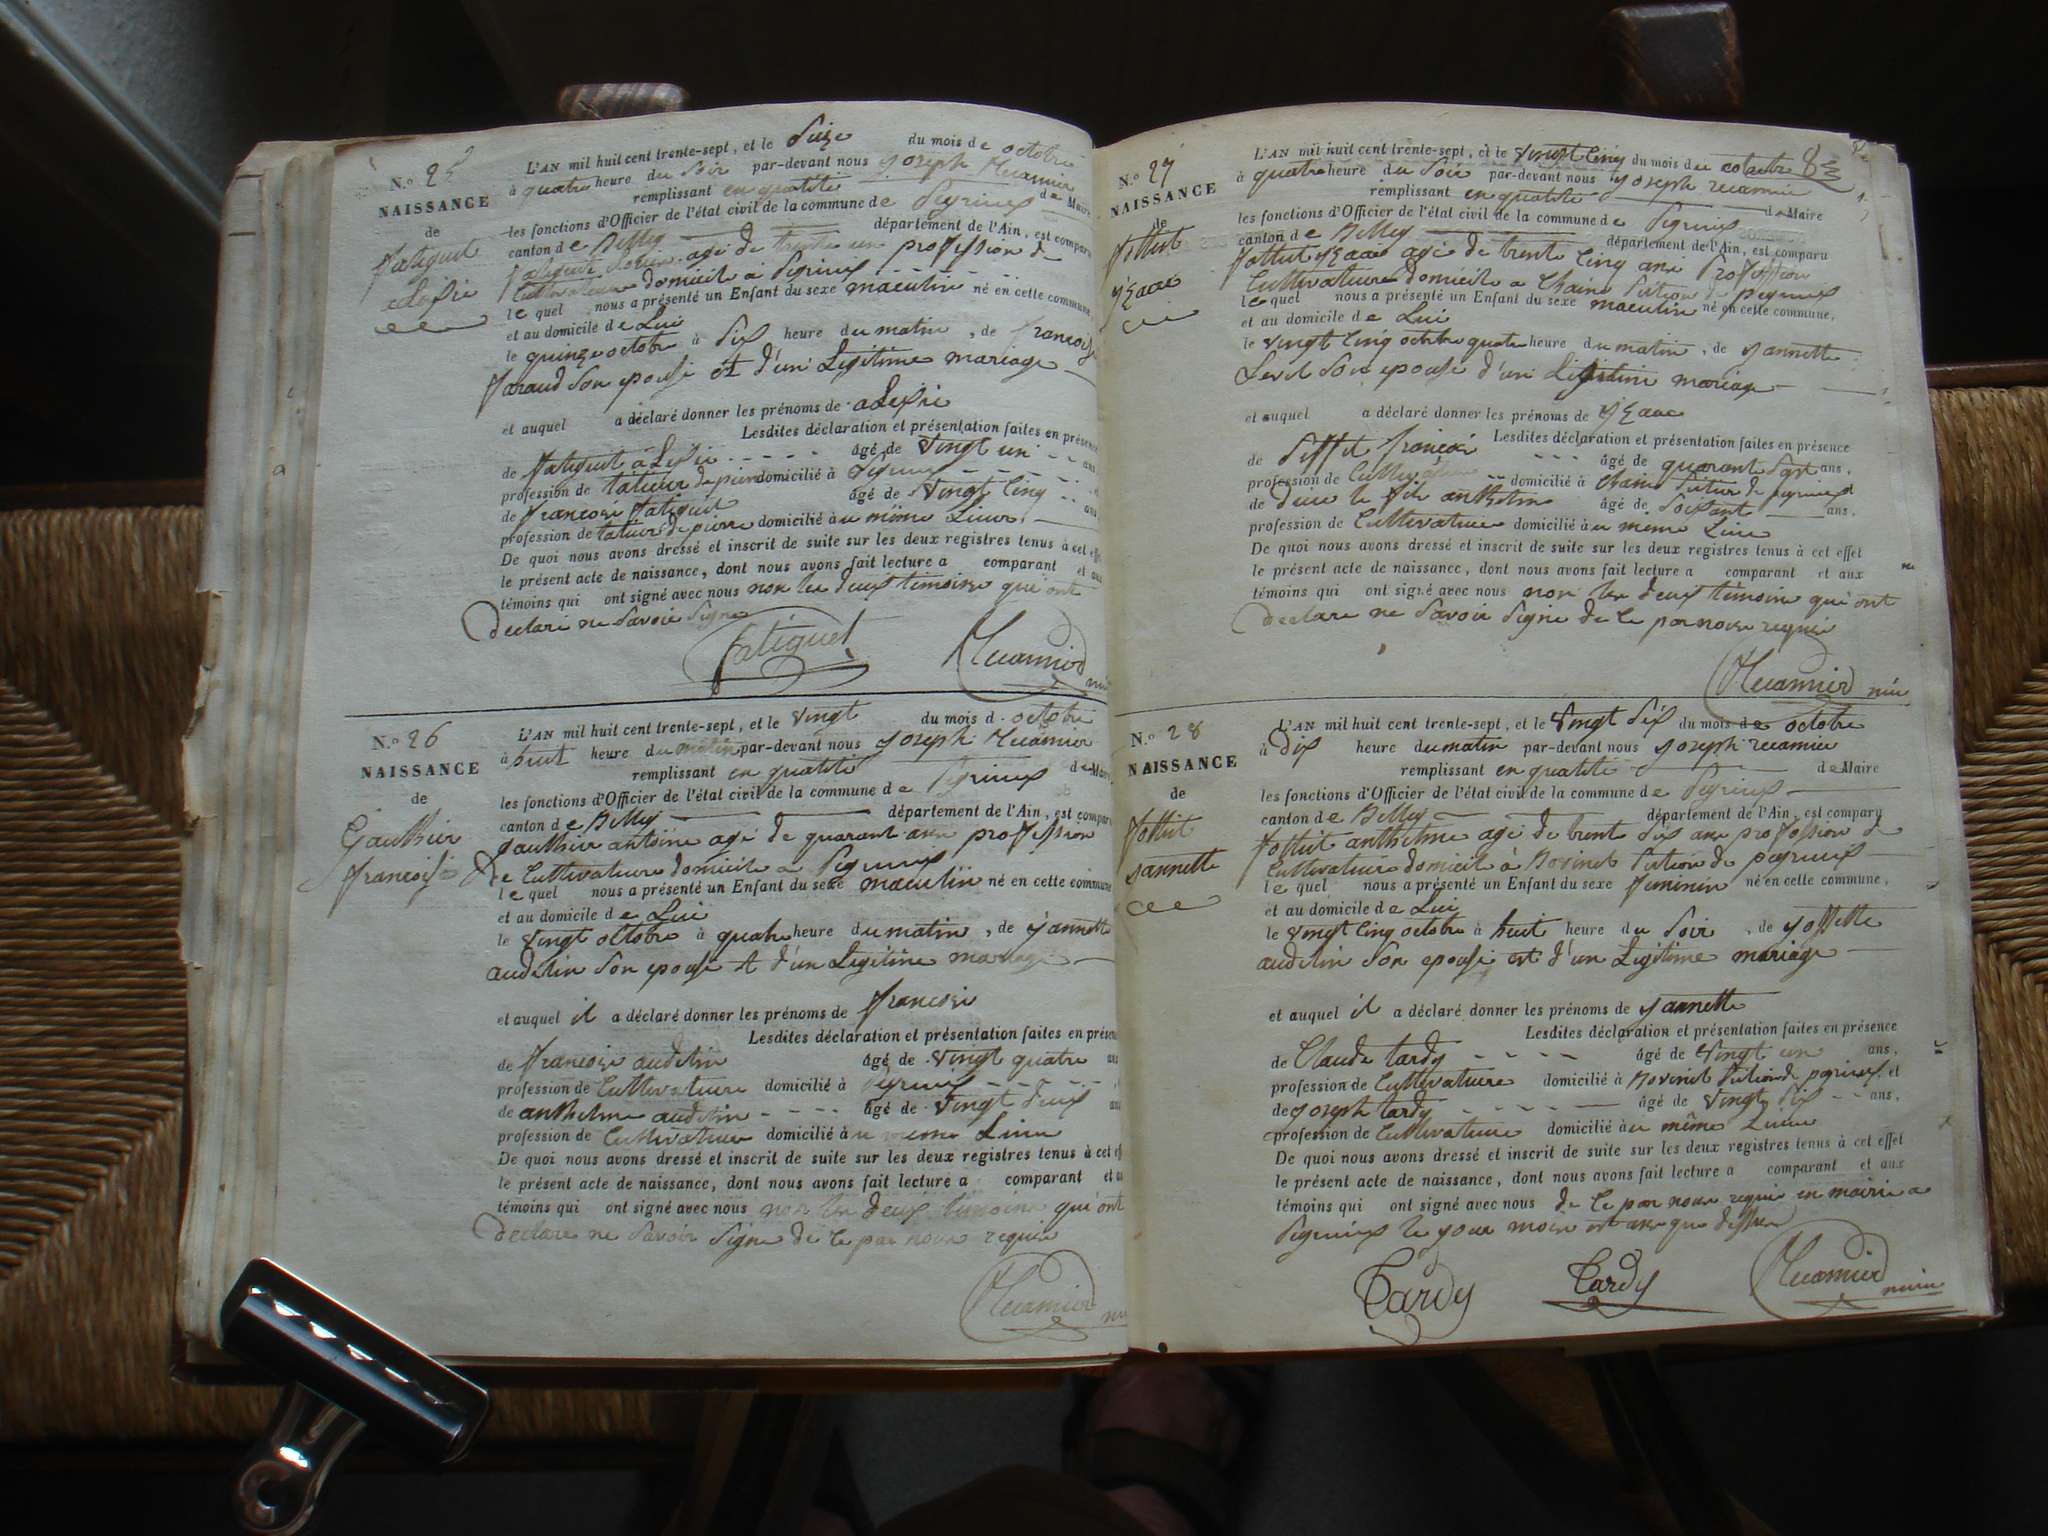 N.o 25
NAISSANCE
de
fatiguet
alexsie
L'AN mil huit cent trente-sept, et le Seize du mois de octobre
à quatre heure du Soir par-devant nous joseph Recamier
remplissant en qualité de Maire
les fonctions d'Officier de l'état civil de la commune de Peyrieux
canton de Belley département de l'Ain, est comparu
agé de trente un proffession de
Cultivateure domicilé à Peyrieux
le quel nous a présenté un Enfant du sexe masculin né en cette commune,
et au domicile de Lui
le quinze octobre à Six heure du matin, de francoise
son epouse et d'un Legitime mariage
et auquel a déclaré donner les prénoms de alexsie
Lesdites déclaration et présentation faites en présence
de fatiguet alexsie âgé de vingt un ans
profession de talieur de pierre domicilié à Peyrieux
de francoise fatiguet âgé de vingt cinq ans
profession de talieur de pierre domicilié à u même Lieux
De quoi nous avons dressé et inscrit de suite sur les deux registres tenus à cet effet
le présent acte de naissance, dont nous avons fait lecture a comparant et aux
témoins qui ont signé avec nous non les deux témoins qui ont
declaré ne Savoir Signe
fatiguet Recamier
N.o 26
NAISSANCE
de
Gauthier
francoise
L'AN mil huit cent trente-sept, et le vingt du mois d octobre
à huit heure du matin par-devant nous joseph Recamier
remplissant en qualité de Maire
les fonctions d'Officier de l'état civil de la commune de Peyrieux
canton de Belley département de l'Ain, est comparu
gauthier antoine agé de quarant ans proffession
de Cultivateure domicilé a Peyrieux
le quel nous a présenté un Enfant du sexe masculin né en cette commune
et au domicile de Lui
le vingt octobre à quatre heure du matin, de jannette
audelin son epouse et d'un Legitime mariage
et auquel il a déclaré donner les prénoms de francoise
Lesdites déclaration et présentation faites en présence
de francoise audelin âgé de vingt quatre ans
profession de Cultivateure domicilié à Peyrieux
de anthelme audelin âgé de vingt deux ans
profession de Cultivateure domicilié à u meme Lieux
De quoi nous avons dressé et inscrit de suite sur les deux registres tenus à cet effet
le présent acte de naissance, dont nous avons fait lecture a comparant et aux
témoins qui ont signé avec nous non les deux témoins qui ont
declare ne Savoir Signe de ce par nous requis
Recamier
N.o 27
NAISSANCE
de
jsaac
L'AN mil huit cent trente-sept, et le vingt Cinq du mois de octobre
à quatre heure du Soir par-devant nous joseph recamier
remplissant en qualité de Maire
les fonctions d'Officier de l'état civil de la commune de Peyrieux
canton de Belley département de l'Ain, est comparu
jsaac agé de trente Cinq ans Proffession
Cultivateure domicilé a de peyrieux
le quel nous a présenté un Enfant du sexe masculin né en cette commune,
et au domicile de Lui
le vingt Cinq octobre quatre heure du matin, de jannette
son epouse d'un Legitime mariage
et auquel a déclaré donner les prénoms de jsaac
Lesdites déclaration et présentation faites en présence
de francois âgé de quarant Sept ans,
profession de Cultivateure domicilié à de peyrieux
de anthelme âgé de Soixante ans,
profession de Cultivateure domicilié à u même Lieu
De quoi nous avons dressé et inscrit de suite sur les deux registres tenus à cet effet
le présent acte de naissance, dont nous avons fait lecture a comparant et aux
témoins qui ont signé avec nous non les deux témoins qui ont
declare ne Savoir Signe de ce par nous requis
Recamier
N.o 28
NAISSANCE
de
jannette
L'AN mil huit cent trente-sept, et le vingt Six du mois de octobre
à Dix heure du matin par-devant nous joseph recamier
remplissant en qualité de Maire
les fonctions d'Officier de l'état civil de la commune de Peyrieux
canton de Belley département de l'Ain, est comparu
anthelme agé de trente Six ans proffession de
Cultivateure domicilé à de peyrieux
le quel nous a présenté un Enfant du sexe feminin né en cette commune,
et au domicile de Lui
le vingt Cinq octobre à huit heure du Soir, de joffette
audelin Son epouse et d'un Legitime mariage
et auquel il a déclaré donner les prénoms de jannette
Lesdites déclaration et présentation faites en présence
de Claude tardy âgé de vingt un ans,
profession de Cultivateure domicilié à de peyrieux et
de joseph tardy âgé de vingt Six ans,
profession de Cultivateure domicilié à u même Lieux
De quoi nous avons dressé et inscrit de suite sur les deux registres tenus à cet effet
le présent acte de naissance, dont nous avons fait lecture a comparant et aux
témoins qui ont signé avec nous de ce par nous requis en mairie a
Peyrieux le jour mois et an que dessus
Tardy Tardy Recamier